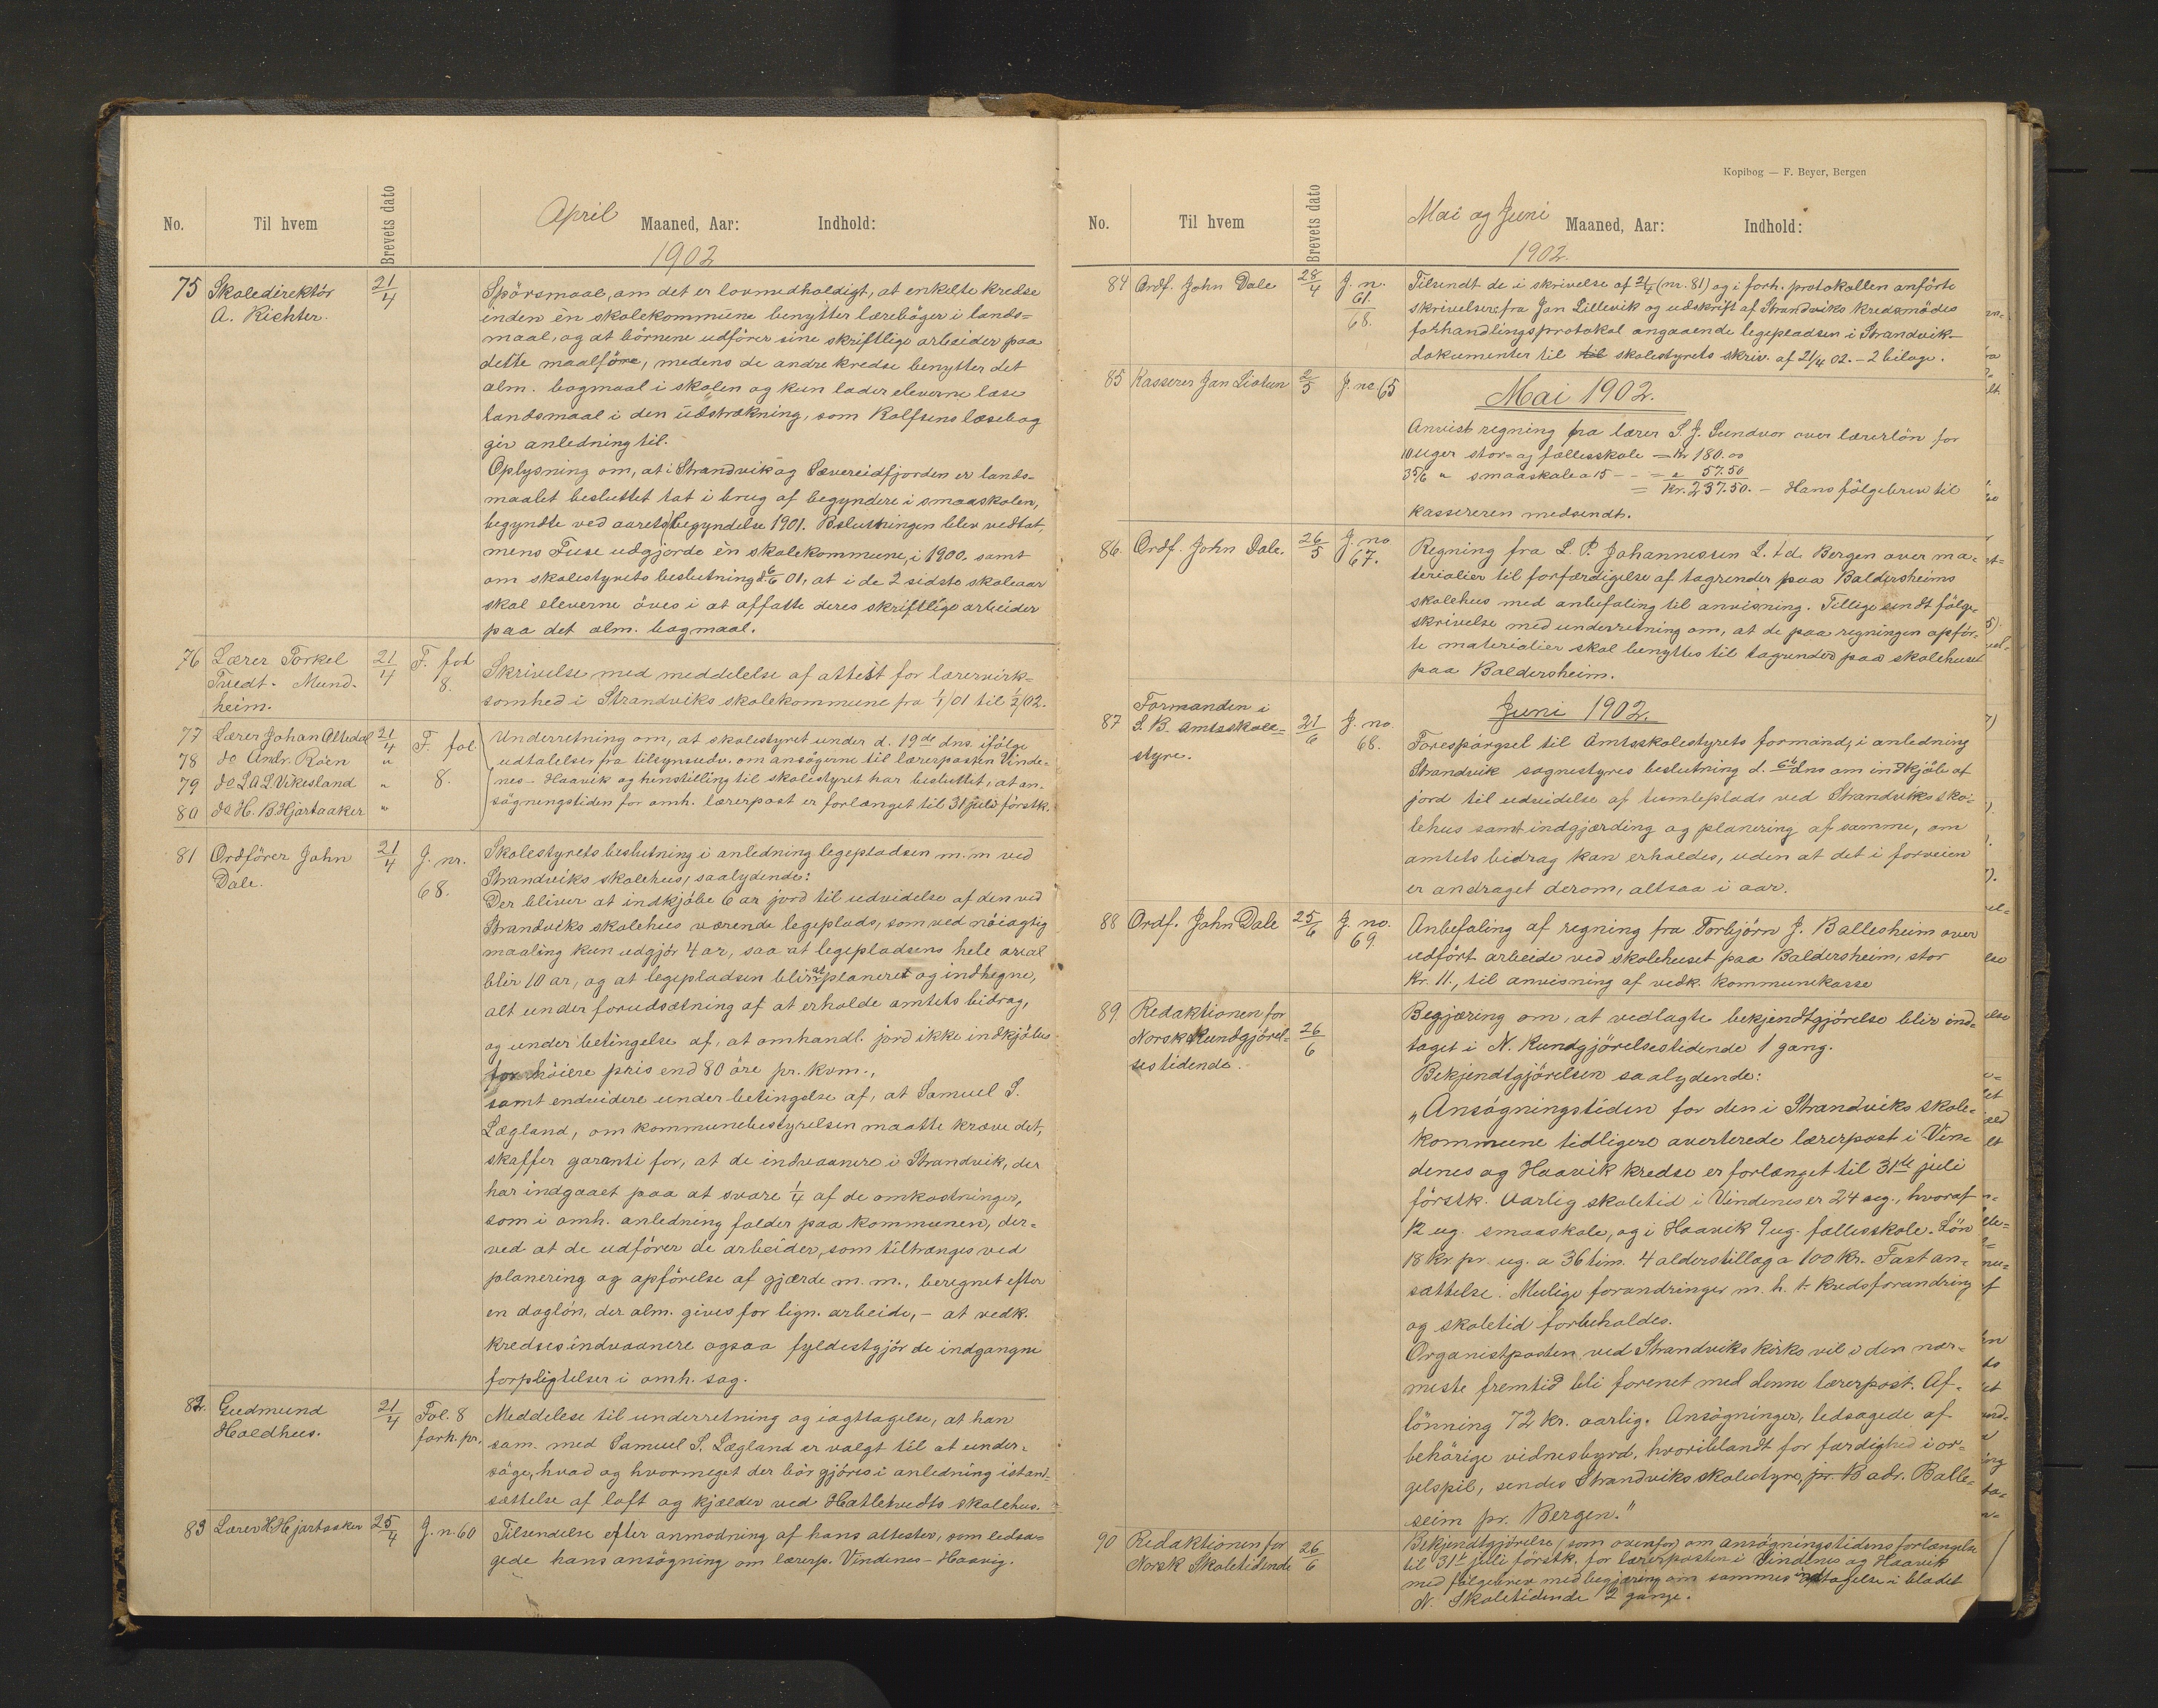 No.
Til hvem
Brevets dato
April Maaned, Aar: Indhold:
1902
75 Skoledirektör 21/4
A. Richter.
Spörsmaal, om det er lovmedholdigt, at enkelte kredse
inden èn skolekommune benytter lærebøger i lands=
maal, og at börnene udförer sine skriftlige arbeider paa
dette maalföre, medens de andre kredse benytter det
alm. bogmaal i skolen og kun lader eleverne læse
landsmaal i den udstrækning, som Rolfsens læsebog
gir anledning til.
Oplysning om, at i Strandvik og Sævereidfjorden er lands=
maalet besluttet tat i brug af begyndere i smaaskolen,
begyndte ved aarets begyndelse 1901. Beslutningen blev vedtat,
mens Fuse udgjorde èn skolekommune, i 1900. samt
om skolestyrets beslutning d. 6/6 01, at i de 2 sidste skoleaar
skal eleverne öves i at affatte deres skriftlige arbeider
paa det alm. bogmaal.
76 Lærer Torkel 21/4 F. fol
Tvedt. Mund- 8.
heim.
Skrivelse med meddelelse af attest for lærervirk=
somhed i Strandviks skolekommune fra 1/1 01 til 1/2 02.
77 Lærer Johan Altedal 21/4 F. fol.
78 do Andr. Röen "
79 do L A L Vikesland " 8.
80 do H. B. Hjartaaker "
Underretning om, at skolestyret under d. 19de dns. ifölge
udtalelser fra tilsynsudv. om ansögerne til lærerposten Vinde=
nes - Haavik og hinstilling til skolestyret har besluttet, at an=
sögningstiden for omh. lærerpost er forlænget til 31 juli förstk.
81 Ordförer John 21/4 J. nr.
Dale. 68.
Skolestyrets beslutning i anledning legepladsen m. m ved
Strandviks skolehus, saalydende:
Der bliver at indkjöbe 6 ar jord til udvidelse af den ved
Strandviks skolehus værende legeplads, som ved nöiagtig
maaling kun udgjör 4 ar, saa at legepladsens hele areal
blir 10 ar, og at legepladsen blir at planeret og indhegne,
alt under forudsætning af at erholde amtets bidrag,
og under betingelse af, at omhandl. jord ikke indkjöbes
for höiere pris end 80 öre pr. kvm.,
samt endvidere under betingelse af, at Samuel S.
Lægland, om kommunebestyrelsen maatte kræve det,
skaffer garanti for, at de indvaanere i Strandvik, der
har indgaaet paa at svare 1/4 af de omkostninger,
som i omh. anledning falder paa kommunen, der=
ved at de udförer de arbeider, som tiltrænges ved
planering og opförelse af gjærde m. m., beregnet efter
en daglön, der alm. gives for lign. arbeide, - at vedk.
kredses indvaanere ogsaa fyldestgjör de indgangne
forpligtelser i omh. sag.
82. Gudmund 21/4 Fol. 8
Holdhus. forh. pr.
Meddelese til underretning og iagttagelse, at han
sam. med Samuel S. Lægland er valgt til at under=
söge, hvad og hvormeget der bör gjöres i anledning istand=
sættelse af loft og kjælder ved Hatletvedts skolehus.
83 Lærer H Hjartaaker 25/4 J. n. 60
Tilsendelse efter anmodning af hans attester, som ledsa=
gede hans ansögning om lærerp. Vindenes - Haavig.
Kopibog — F. Beyer, Bergen
No.
Til hvem
Brevets dato
Mai og Juni Maaned, Aar: Indhold:
1902.
84 Ordf. John Dale 28/4 J. n.
61.
68.
Tilsendt de i skrivelse af 21/4 (nr. 81) og i forh. protokollen anförte
skrivelser fra Jan Lillevik og udskrift af Strandviks kredsmödes
forhandlingsprotokol angaaende legepladsen i Strandvik -
dokumenter til til skolestyrets skriv. af 21/4 02. - 2 bilage.
85 Kasserer Jan Liatun 2/5 J. no 65
Mai 1902.
Anvist regning fra lærer S. J. Sundvor over lærerlön for
10 uger stor- og fællesskole = Kr 180.00
3 5/6 " smaaskole a 15 - - = " 57.50
= Kr. 237.50. - Hans fölgebrev til
kassereren medsendt.
86. Ordf. John Dale. 26/5 J. no
67.
Regning fra L. P. Johannessen L. td. Bergen over ma=
terialier til forfærdigelse af tagrender paa Baldersheims
skolehus med anbefaling til anvisning. Tillige sendt fölge=
skrivelse med underretning om, at de paa regningen opför=
te materialier skal benyttes til tagrender paa skolehuset
paa Baldersheim.
Juni 1902.
87 Formanden i 21/6 J. no.
S. B. amtsskole= 68.
styre.
Forespörgsel til Amtsskolestyrets formand, i anledning
Strandvik sognestyres beslutning d. 6te dns om indkjöb af
jord til udvidelse af tumleplads ved Strandviks sko=
lehus samt indgjærding og planering af samme, om
amtets bidrag kan erholdes, uden at det i forveien
er andraget derom, altsaa i aar.
88 Ordf. John Dale 25/6 J. no.
69.
Anbefaling af regning fra Torbjörn J. Ballesheim over
udfört arbeide ved skolehuset paa Baldersheim, stor
Kr. 11., til anvisning af vedk. kommunekasse
89. Redaktionen for 26/6
Norsk Kundgjörel=
sestidende.
Begjæring om, at vedlagte bekjendtgjörelse blir ind=
taget i N. Kundgjörelsestidende 1 gang.
Bekjendtgjörelsen saalydende:
„Ansögningstiden for den i Strandviks skole=
kommune tidligere averterede lærerpost i Vin=
denes og Haavik kredse er forlænget til 31te juli
förstk. Aarlig skoletid i Vindenes er 24 ug., hvoraf
12 ug. smaaskole, og i Haavik 9 ug. fællesskole. Lön
18 kr pr. ug. a 36 tim. 4 alderstillæg a 100 kr. Fast an=
sættelse. Mulige forandringer m. h. t. kredsforandring
og skoletid forbeholdes.
Organistposten ved Strandviks kirke vil i den nær=
meste fremtid bli forenet med denne lærerpost. Af=
lönning 72 kr. aarlig. Ansögninger, ledsagede af
behörige vidnesbyrd, hvoriblandt for færdighed i or=
gelspil, sendes Strandviks skolestyre, pr. B adr. Balle=
seim pr. Bergen."
90 Redaktionen for 26/6
Norsk Skoletidende
Bekjendtgjörelse (som ovenfor) om ansögningstidens forlængelse
til 31te juli förstk. for lærerposten i Vindenes og Haavik
med fölgebrev med begjæring om sammes indtagelse i bladet
N. Skoletidende 2 gange.